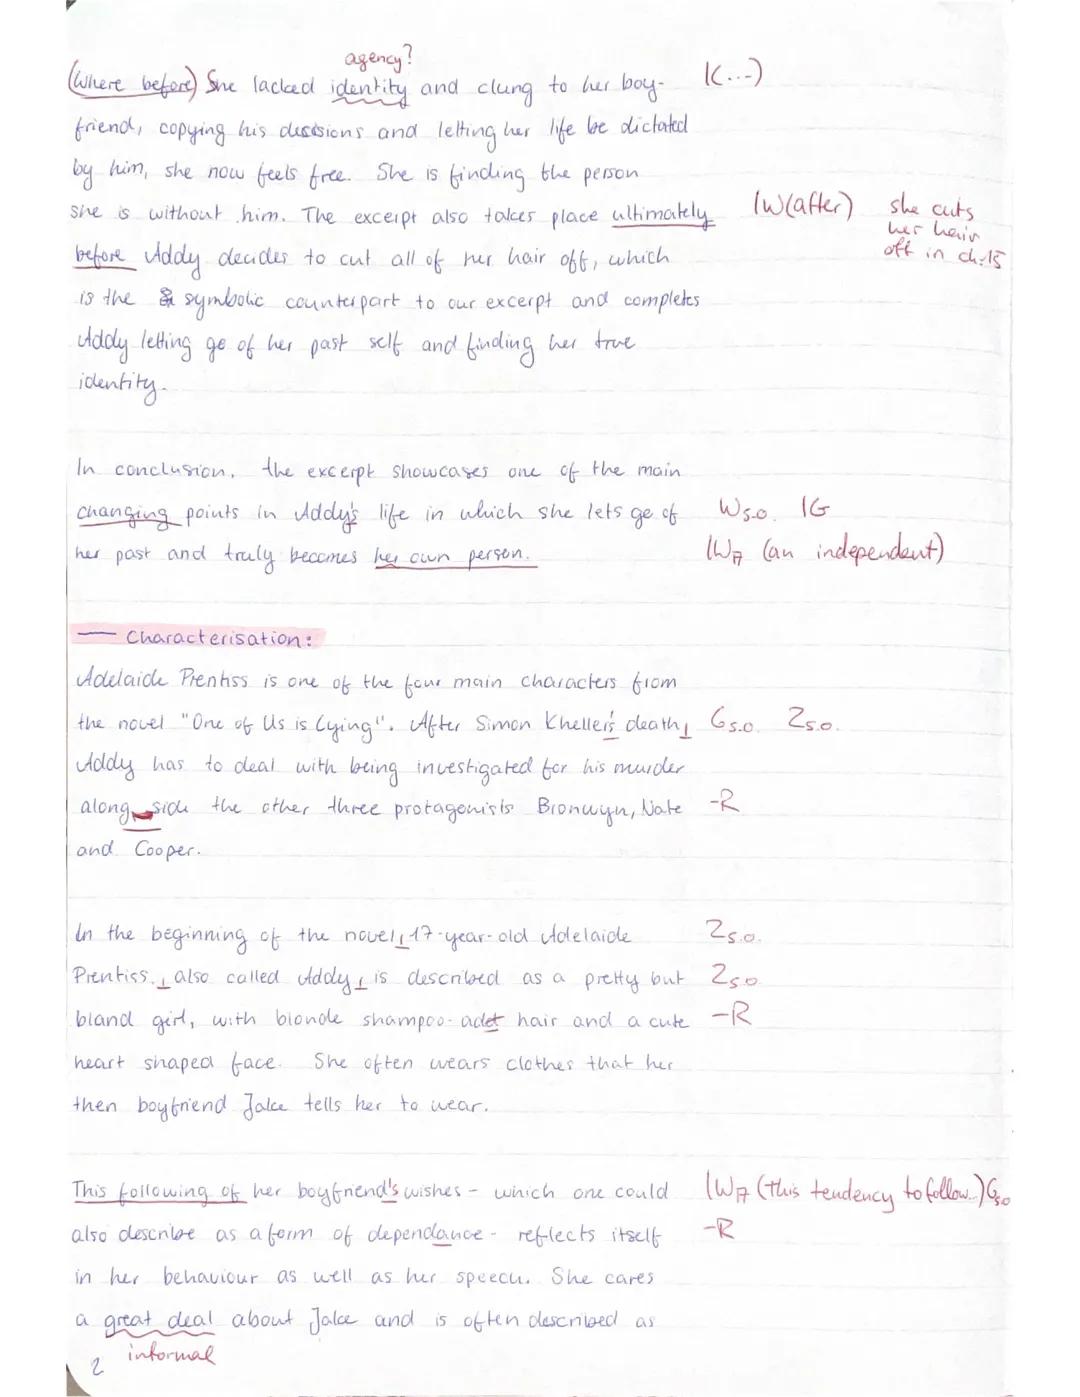 agency?
(Where before) She lacked identity and clung to her boy- K(...)
friend, copying his decisions and letting her life be dictated
by him, she now feels free. She is finding the person
she is without him. The excerpt also takes place ultimately IW(after) she cuts
her hair
before Addy decides to cut all of her hair off, which off in ch.15
is the symbolic counterpart to our excerpt and completes
Addy letting go of her past self and finding her true
identity.
In conclusion, the excerpt showcases one of the main
changing points in Addy's life in which she lets go of Ws.o. IG
her past and truly becomes her own person. IWA (an independent)
— Characterisation:
Adelaide Prentiss is one of the four main characters from
the novel "One of Us is Lying". After Simon Kheller's death, Gs.o. Zs.o.
Addy has to deal with being investigated for his murder
along side the other three protagonists Bronwyn, Nate -R
and Cooper.
In the beginning of the novel, 17-year-old Adelaide Zs.o.
Prentiss, also called Addy, is described as a pretty but Zs.o
bland girl, with blonde shampoo-adet hair and a cute -R
heart shaped face. She often wears clothes that her
then boyfriend Jake tells her to wear.
This following of her boyfriend's wishes - which one could IWA (this tendency to follow...) Gs.o
also describe as a form of dependance - reflects itself -R
in her behaviour as well as her speech. She cares
a great deal about Jake and is often described as
informal
2